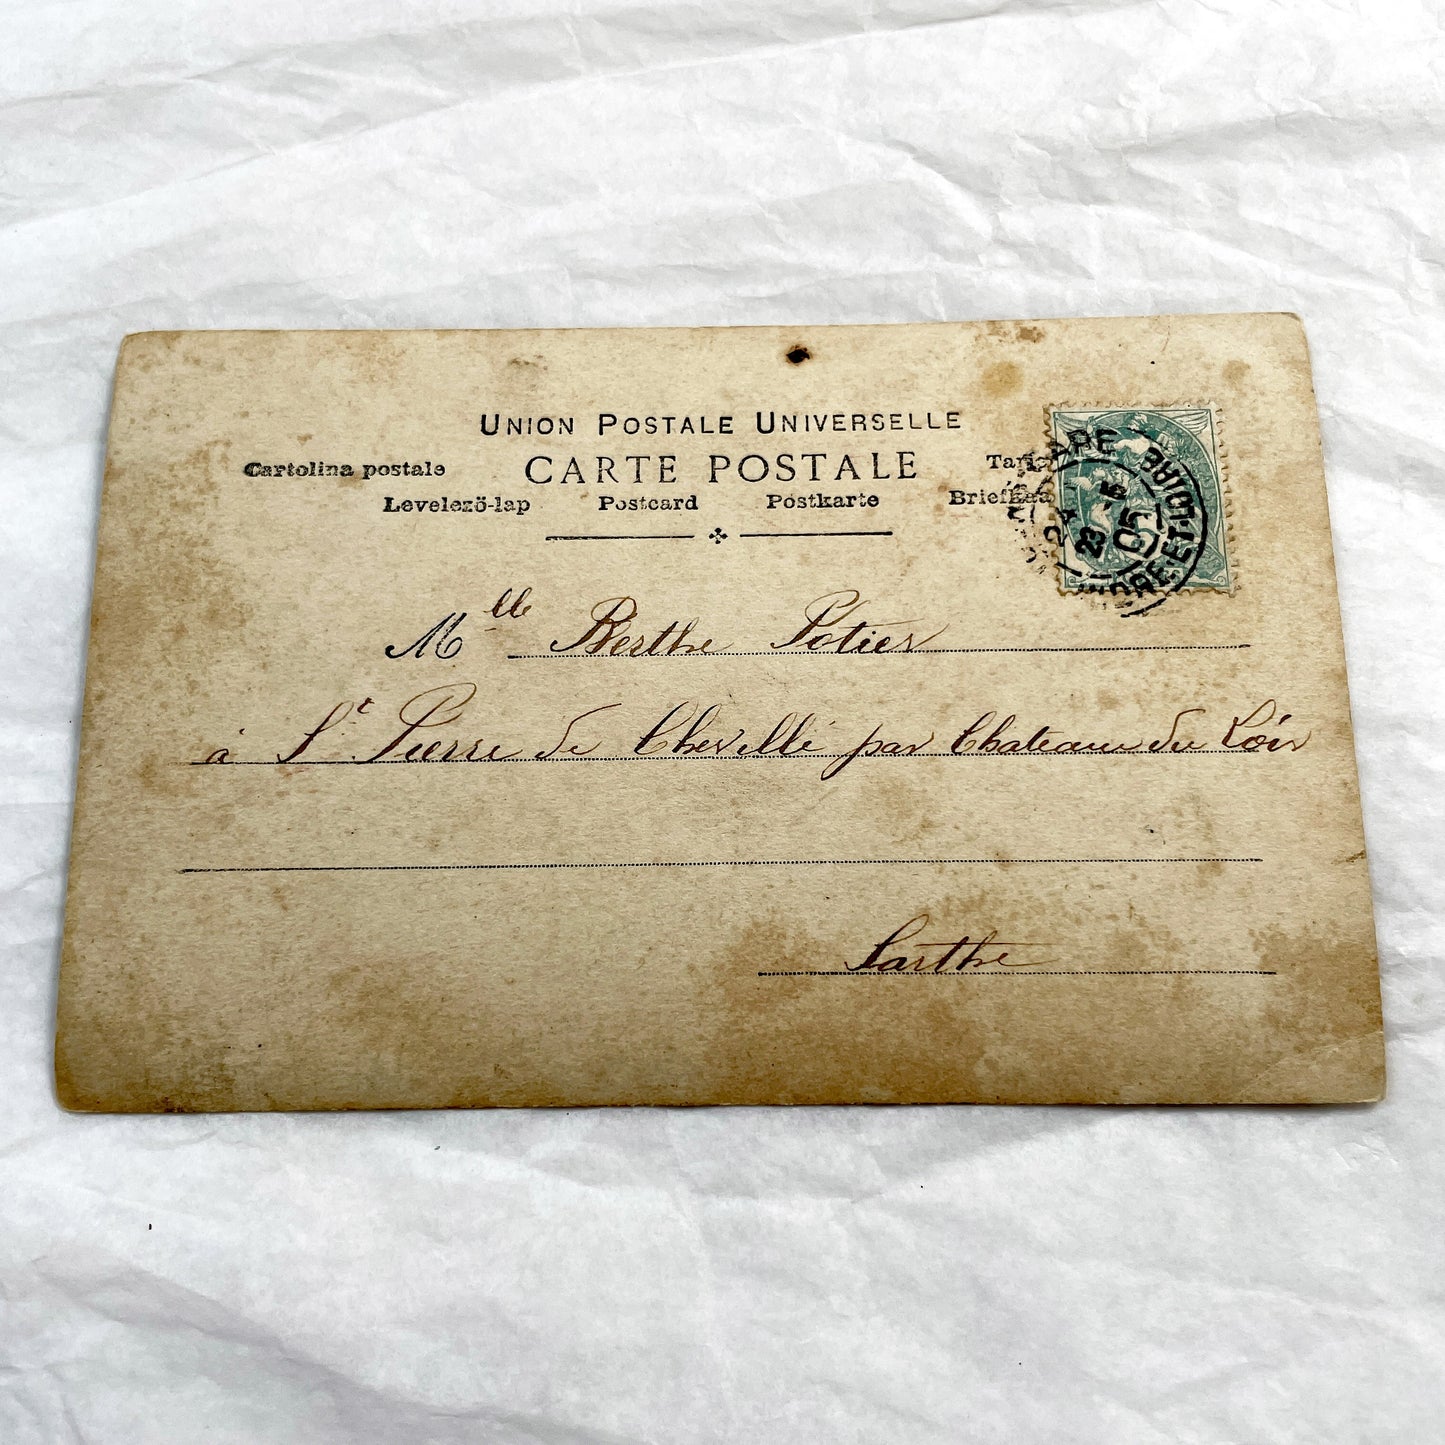 UNION POSTALE UNIVERSELLE
Cartolina postale CARTE POSTALE
Levelező-lap Postcard Postkarte
GARE
INDRE-ET-LOIRE
23 -5
05
Mlle Berthe Potier
à St. Pierre de Chevillé par Chateau du Loir
Sarthe